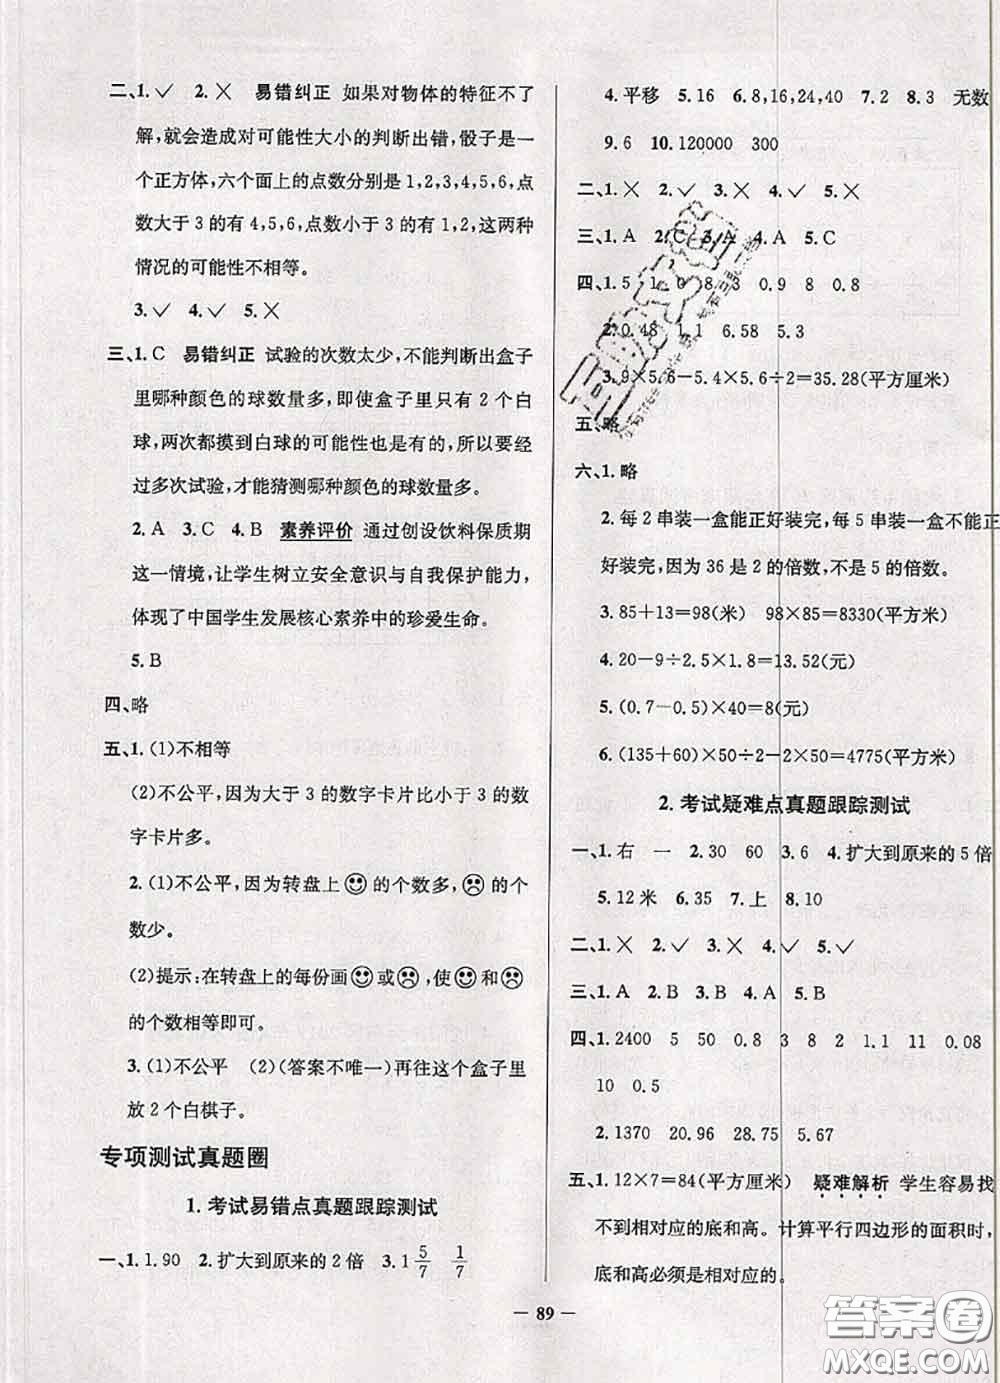 二、1.✓ 2.✗ 易错纠正 如果对物体的特征不了
解,就会造成对可能性大小的判断出错,骰子是
一个正方体,六个面上的点数分别是 1,2,3,4,5,6,点
数大于 3 的有 4,5,6,点数小于 3 的有 1,2,这两种
情况的可能性不相等。
3.✓ 4.✓ 5.✗
三、1.C 易错纠正 试验的次数太少,不能判断出盒子
里哪种颜色的球数量多,即使盒子里只有 2 个白
球,两次都摸到白球的可能性也是有的,所以要经
过多次试验,才能猜测哪种颜色的球数量多。
2.A 3.C 4.B 素养评价 通过创设饮料保质期
这一情境,让学生树立安全意识与自我保护能力,
体现了中国学生发展核心素养中的珍爱生命。
5.B
四、略
五、1.(1)不相等
(2)不公平,因为大于 3 的数字卡片比小于 3 的数
字卡片多。
2.(1)不公平,因为转盘上☺的个数多,☹的个
数少。
(2)提示:在转盘上的每份画☺或☹,使☺和☹
的个数相等即可。
3.(1)不公平 (2)(答案不唯一)再往这个盒子里
放 2 个白棋子。
专项测试真题圈
1.考试易错点真题跟踪测试
一、1.1.90 2.扩大到原来的 2 倍 3.1 5/7 1/7
4.平移 5.16 6.8,16,24,40 7.2 8.3 无数
9.6 10.120000 300
二、1.✗ 2.✓ 3.✗ 4.✓ 5.✗
三、1.A 2.C 3.A 4.A 5.C
四、1.5 1 0 8 3 0.9 8 0.8
2.0.48 1.1 6.58 5.3
3.9×5.6-5.4×5.6÷2=35.28(平方厘米)
五、略
六、1.略
2.每 2 串装一盒能正好装完,每 5 串装一盒不能正
好装完,因为 36 是 2 的倍数,不是 5 的倍数。
3.85+13=98(米) 98×85=8330(平方米)
4.20-9÷2.5×1.8=13.52(元)
5.(0.7-0.5)×40=8(元)
6.(135+60)×50÷2-2×50=4775(平方米)
2.考试疑难点真题跟踪测试
一、1.右 一 2.30 60 3.6 4.扩大到原来的 5 倍
5.12 米 6.35 7.上 8.10
二、1.✗ 2.✓ 3.✗ 4.✓ 5.✓
三、1.A 2.B 3.B 4.A 5.B
四、1.2400 5 50 0.8 3 8 2 1.1 11 0.08
10 0.5
2.1370 20.96 28.75 5.67
五、1.12×7=84(平方厘米) 疑难解析 学生容易找
不到相对应的底和高。计算平行四边形的面积时,
底和高必须是相对应的。
— 89 —
答案圈
MXQE.COM